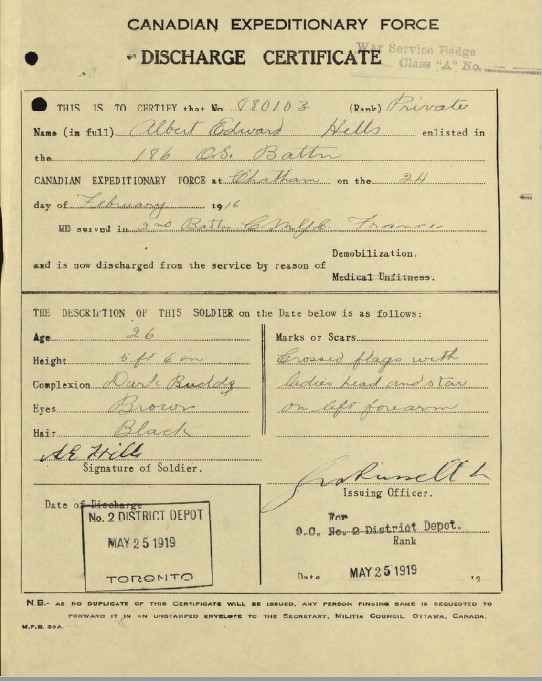 CANADIAN EXPEDITIONARY FORCE
DISCHARGE CERTIFICATE
War Service Badge
Class "A" No.
THIS IS TO CERTIFY that No 880103 (Rank) Private
Name (in full) Albert Edward Hills enlisted in
the 186 O.S. Battn
CANADIAN EXPEDITIONARY FORCE at Chatham on the 24
day of February 1916
HE served in 2nd Battn C.M.G.C. France
and is now discharged from the service by reason of
Demobilization.
Medical Unfitness.
THE DESCRIPTION OF THIS SOLDIER on the Date below is as follows:
Age 26
Height 5 ft 6 in
Complexion Dark Ruddy
Eyes Brown
Hair Black
Marks or Scars
Crossed flags with
ladies head and star
on left forearm
A E Hills
Signature of Soldier.
Issuing Officer.
For
O.C. No. 2 District Depot.
Rank
Date MAY 25 1919 19
Date of Discharge
No. 2 DISTRICT DEPOT
MAY 25 1919
TORONTO
N.B.- AS NO DUPLICATE OF THIS CERTIFICATE WILL BE ISSUED, ANY PERSON FINDING SAME IS REQUESTED TO
FORWARD IT IN AN UNSTAMPED ENVELOPE TO THE SECRETARY, MILITIA COUNCIL OTTAWA, CANADA.
M.F.B. 39A.